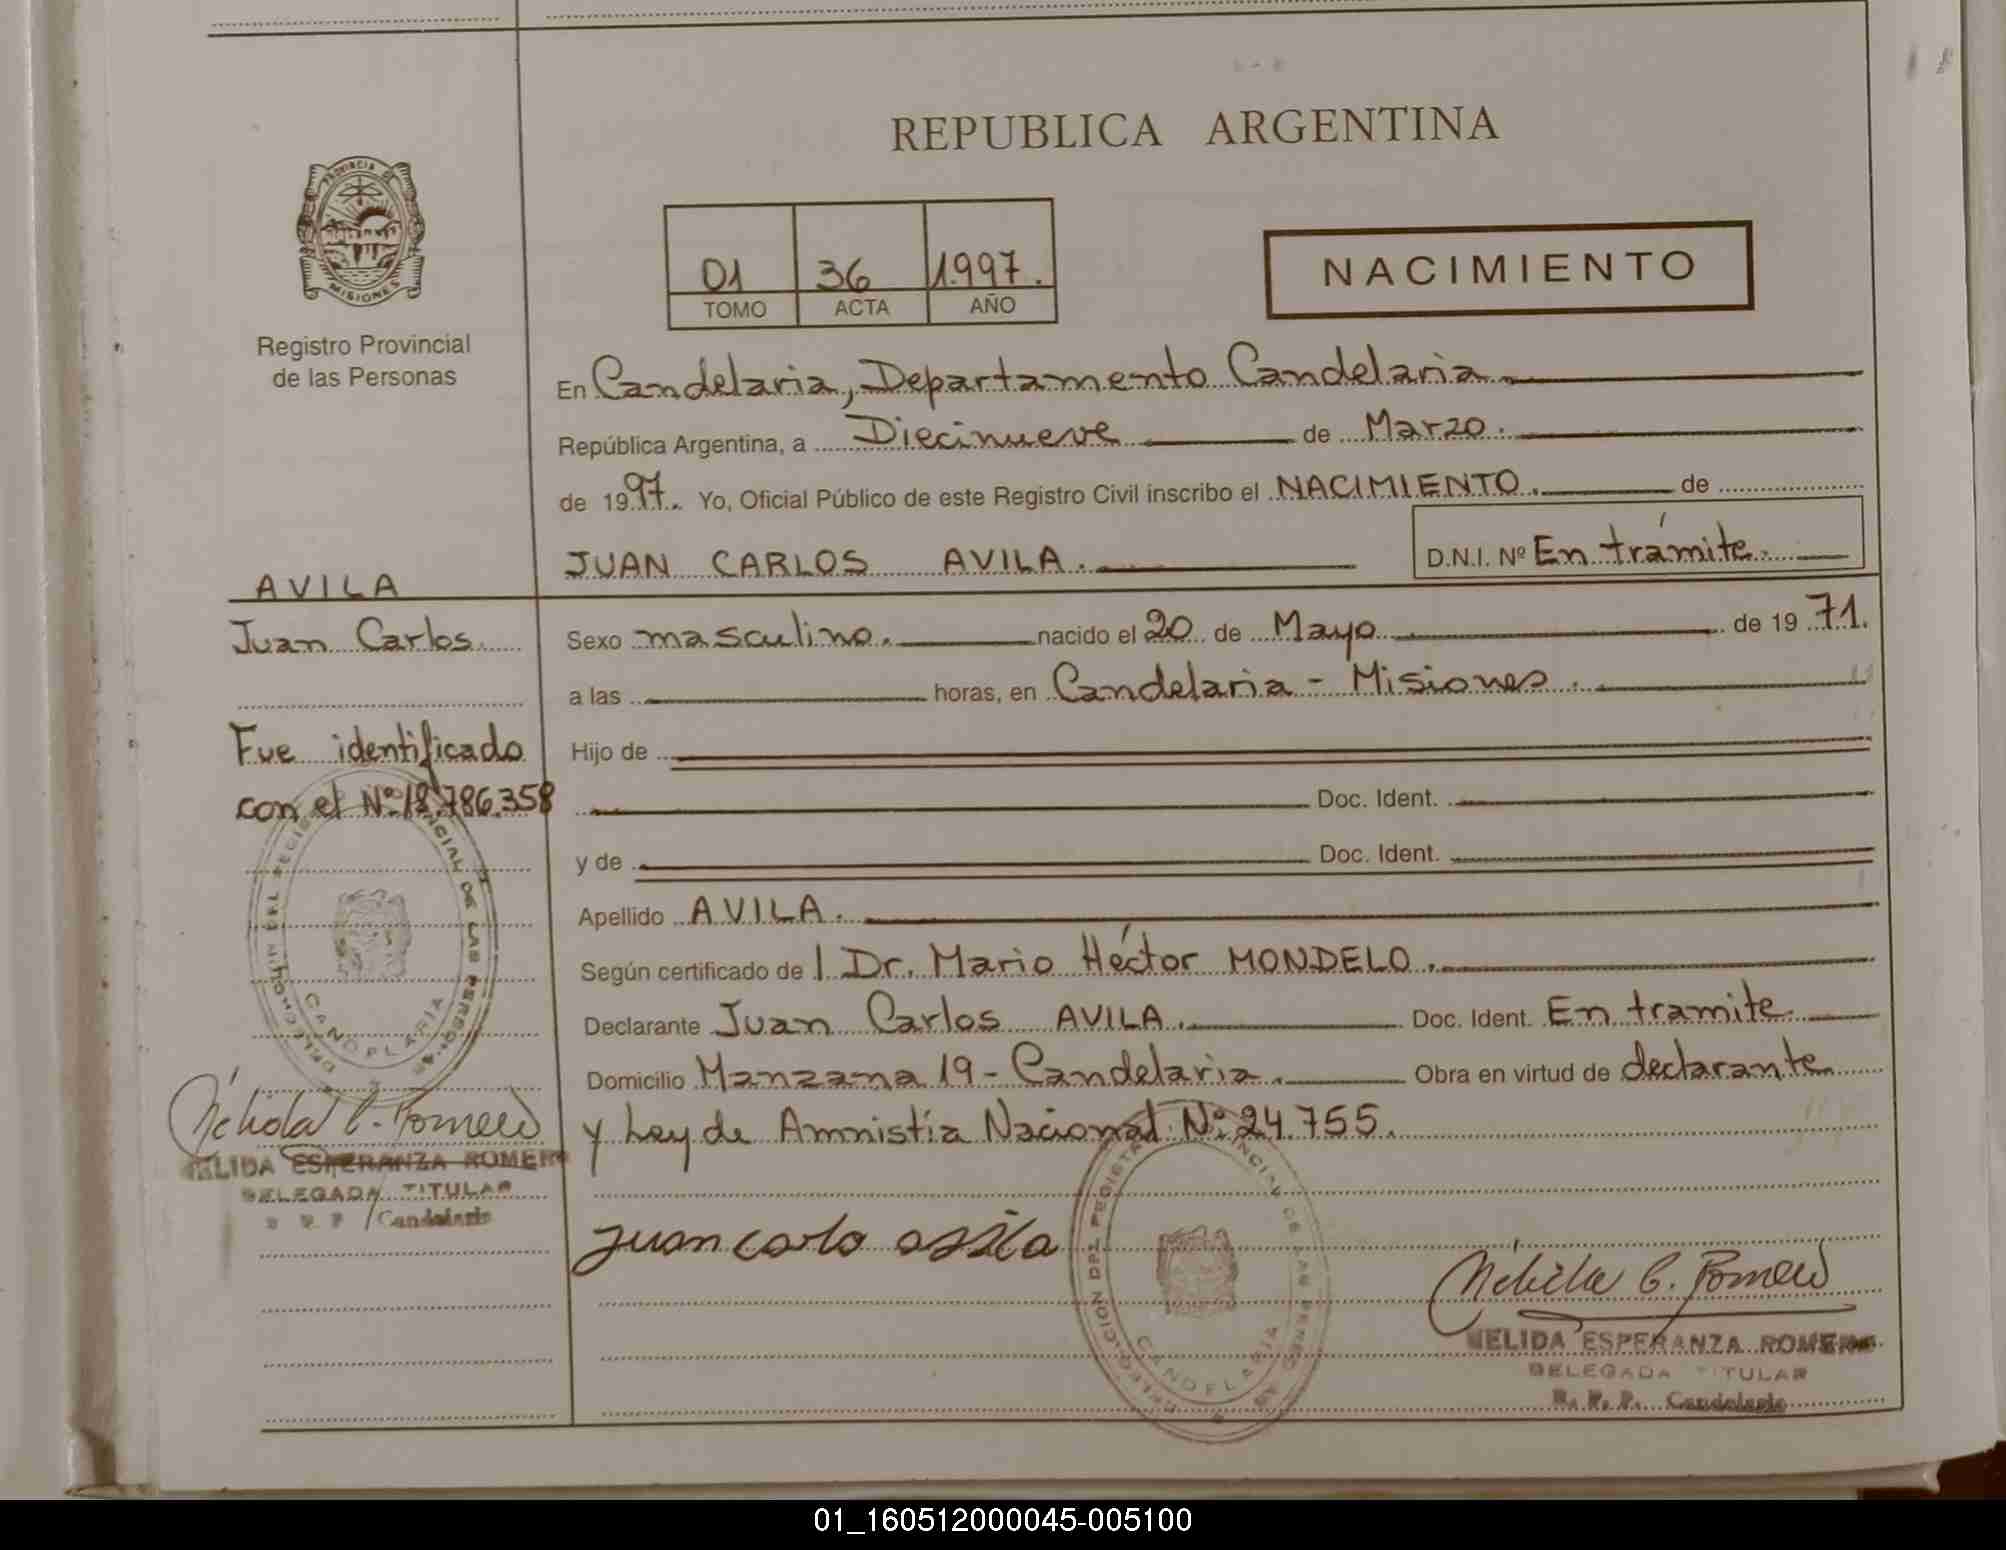 REPUBLICA ARGENTINA
PROVINCIA DE
MISIONES
Registro Provincial
de las Personas
01 36 1.997.
TOMO ACTA AÑO
NACIMIENTO
En Candelaria, Departamento Candelaria.
República Argentina, a Diecinueve de Marzo.
de 1997. Yo, Oficial Público de este Registro Civil inscribo el NACIMIENTO. de
JUAN CARLOS AVILA. D.N.I. Nº En trámite.
AVILA
Juan Carlos.
Fue identificado
con el Nº 18.786.358
Sexo masculino. nacido el 20 de Mayo de 19 71.
a las horas, en Candelaria - Misiones.
Hijo de
Doc. Ident.
y de Doc. Ident.
Apellido AVILA.
Según certificado de l Dr. Mario Héctor MONDELO.
Declarante Juan Carlos AVILA. Doc. Ident. En tramite.
Domicilio Manzana 19 - Candelaria. Obra en virtud de declarante
y Ley de Amnistía Nacional Nº 24.755.
DELEGACION DEL REGISTRO PROVINCIAL DE LAS PERSONAS
CANDELARIA
Nélida E. Romero
NELIDA ESPERANZA ROMERO
DELEGADA TITULAR
R. P. P. Candelaria
juan carlo avila
DELEGACION DEL REGISTRO PROVINCIAL DE LAS PERSONAS
CANDELARIA
Nélida E. Romero
NELIDA ESPERANZA ROMERO
DELEGADA TITULAR
R. P. P. Candelaria
01_160512000045-005100